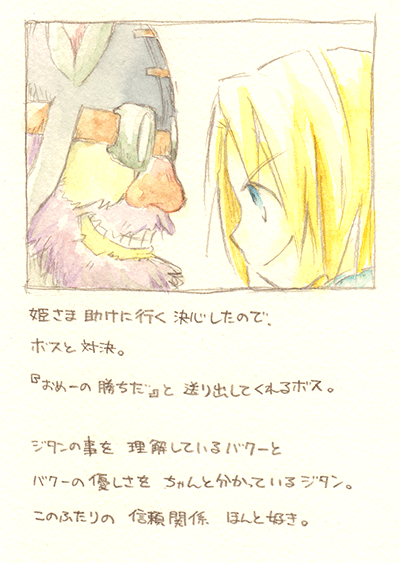 姫さま 助けに行く 決心したので、
ボスと対決。
『おめーの 勝ちだ』と 送り出してくれるボス。
ジタンの事を 理解しているバクーと
バクーの優しさを ちゃんと分かっているジタン。
このふたりの 信頼関係 ほんと好き。